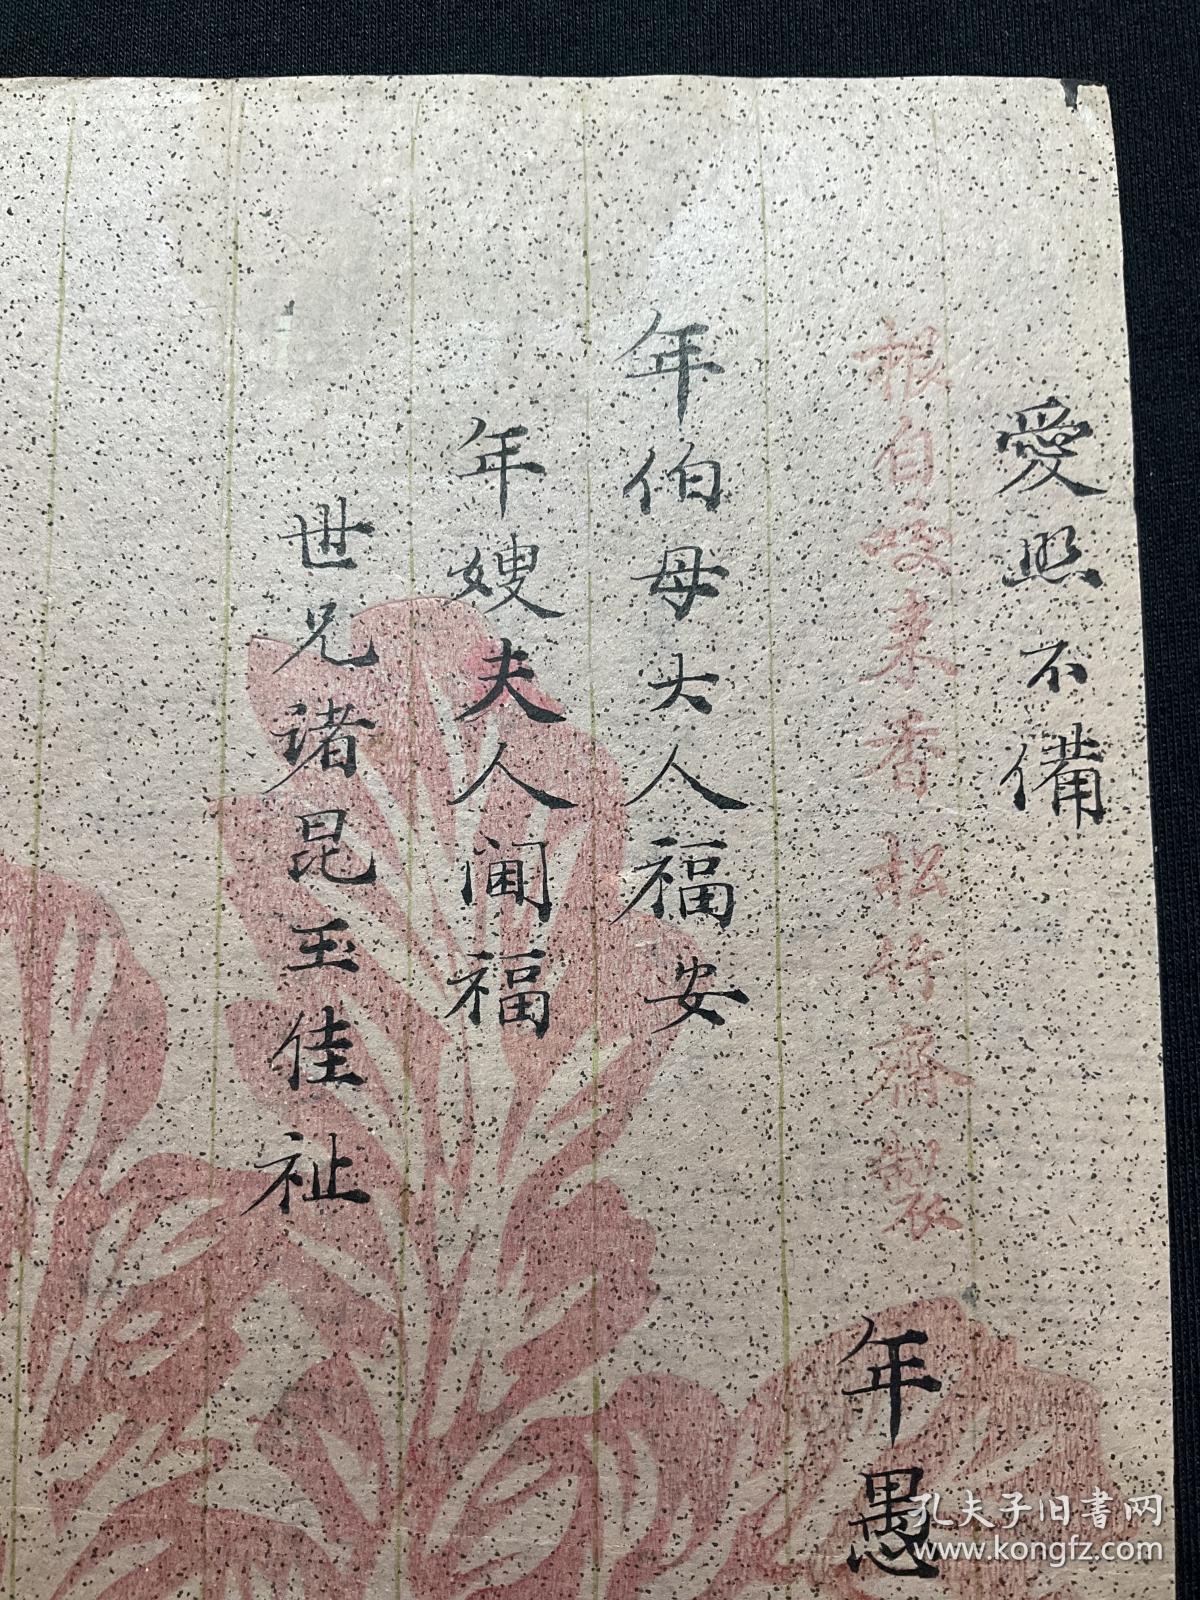 愛照不備
根自咬来香松竹齋製
年愚
年伯母大人福安
年嫂夫人闻福
世兄诸昆玉佳祉
孔夫子旧書网
www.kongfz.com